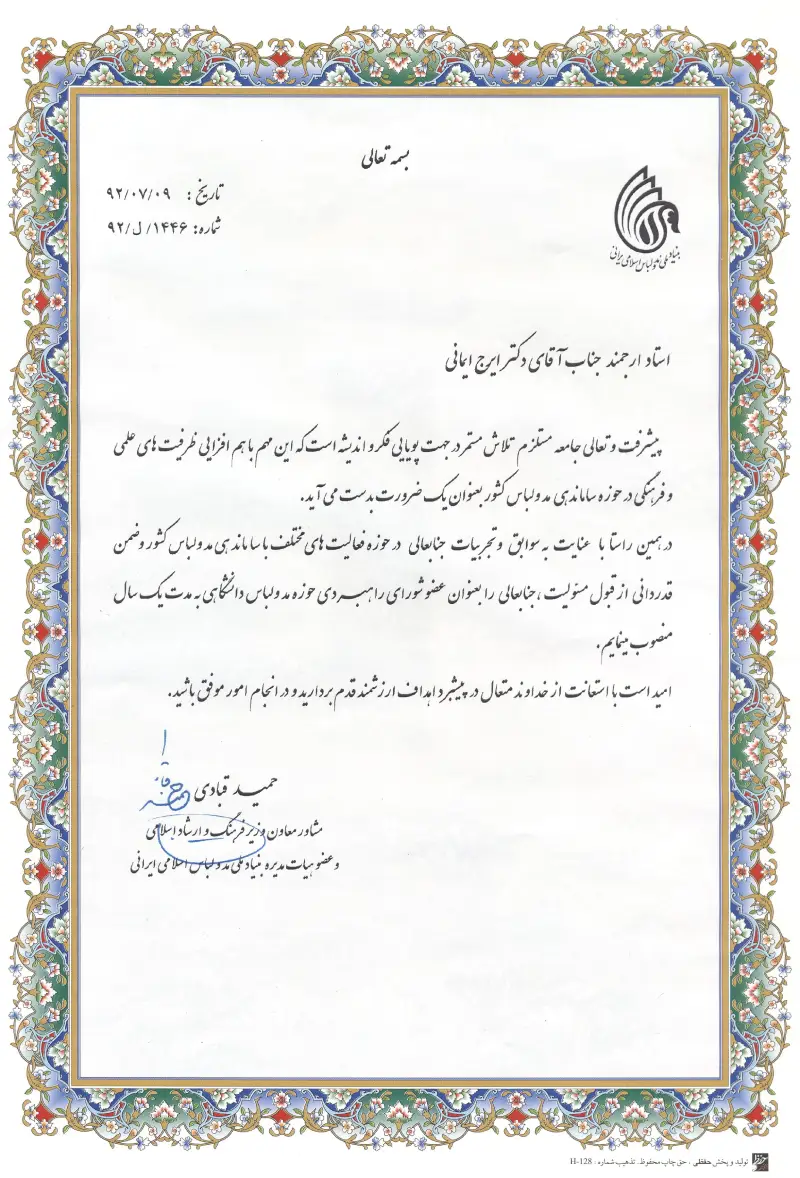 بسمه تعالی
تاریخ : ۹۲/۰۷/۰۹
شماره: ۱۴۴۶/ ل/ ۹۲
بنیاد ملی مد و لباس اسلامی ایرانی
استاد ارجمند جناب آقای دکتر ایرج ایمانی
پیشرفت و تعالی جامعه مستلزم تلاش مستمر در جهت پویایی فکر و اندیشه است که این مهم با هم افزایی ظرفیت های علمی
و فرهنگی در حوزه ساماندهی مد و لباس کشور بعنوان یک ضرورت بدست می آید.
در همین راستا با عنایت به سوابق و تجربیات جنابعالی در حوزه فعالیت های مختلف با ساماندهی مد و لباس کشور و ضمن
قدردانی از قبول مسئولیت ، جنابعالی را بعنوان عضو شورای راهبردی حوزه مد و لباس دانشگاهی به مدت یک سال
منصوب مینمایم.
امید است با استعانت از خداوند متعال در پیشبرد اهداف ارزشمند قدم بردارید و در انجام امور موفق باشید.
حمید قبادی
مشاور معاون وزیر فرهنگ و ارشاد اسلامی
و عضو هیات مدیره بنیاد ملی مد و لباس اسلامی ایرانی
تولید و پخش حفظی ، حق چاپ محفوظ. تذهیب شماره : H-128